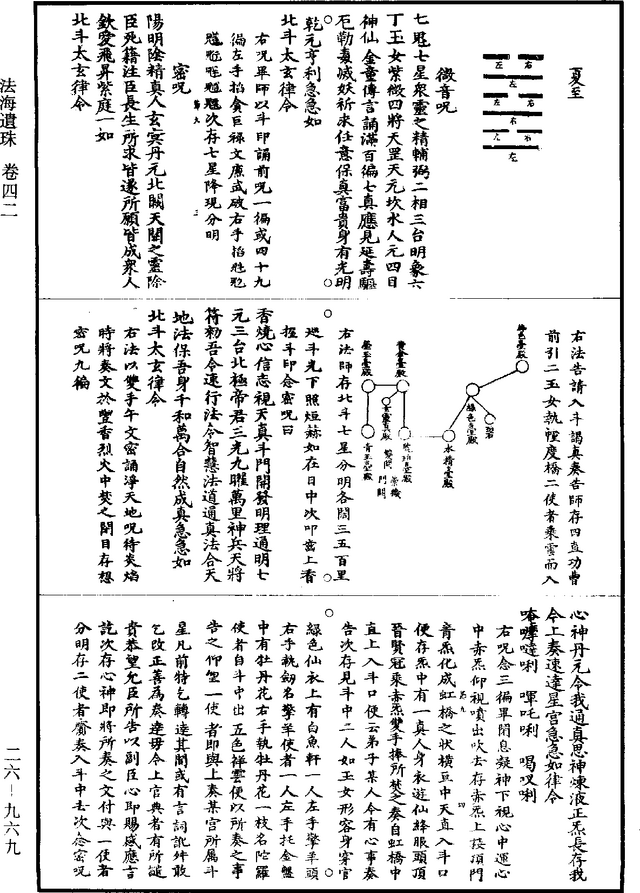 法海遺珠 卷四二
二六—九六九
夏至
左 右
右
左 右
左
微音呪
七魁七星衆靈之精輔弼二相三台明象六
丁玉女紫微四將天罡天元坎水人元四目
神仙金童傳言誦滿百徧七真應見延壽驅
厄勒毒滅妖祈求任意保真富貴身有光明
乾元亨利急急如
北斗太玄律令
右呪畢師以斗印誦前呪一徧或四十九
徧左手掐貪巨祿文廉武破右手掐
次存七星降現分明
密呪
陽明陰精真人玄冥丹元北關天關之靈除
臣死籍注臣長生所求皆遂所願皆成衆人
欽愛飛昇紫庭一如
北斗太玄律令
右法告請入斗謁真奏告師存四直功曹
前引二玉女執程度橋二使者乘雲而入
綠色臺殿
水精臺殿
黃金臺殿
右法師存北斗七星分明各闊三五百里
迎斗光下照烜赫如在日中次叩齒上香
握斗印念密呪曰
香燒心信志視天真斗門開發明理通明七
元三台北極帝君三光九曜萬里神兵天將
符勑吾令速行法令智慧法道通真法合天
地法保吾身千和萬合自然成真急急如
北斗太玄律令
右法以雙手午文密誦淨天地呪待炎焰
時將奏文於豐香烈火中焚之閉目存想
密呪九徧
心神丹元令我通真思神煉液正炁長存我
今上奏速達星宮急急如律令
唵㘕噠唎 㖀吒唎 喝㕭唎
右呪念三徧畢閉息凝神下視心中運心
中赤炁仰視噴出吹去存赤炁上莰頂門
青炁化成虹橋之狀橫亘中天直入斗口
便存炁中有一真人身衣遊仙絳服頭頂
晉賢冠乘赤炁雙手捧所焚之奏自虹橋中
直上入斗口便云弟子某人今有心事奏
告次存見斗中二人如玉女形容身穿官
綠色仙衣上有白魚軒一人左手擎羊頭
右手執劒名擎羊使者一人左手托金盤
中有牡丹花右手執牡丹花一枝名陀羅
使者自斗中出五色祥雲便以所奏之事
告之仰望一使者即與上奏某宮所屬斗
星凡前特乞轉達其閒或有言詞訛舛敢
乞改正善為奏達毋令上官典者有所譴
責恭望允臣所告以副臣心即賜感應言
訖次存心神即將所奏之文付與一使者
分明存二使者齎奏入斗中去次念密呪